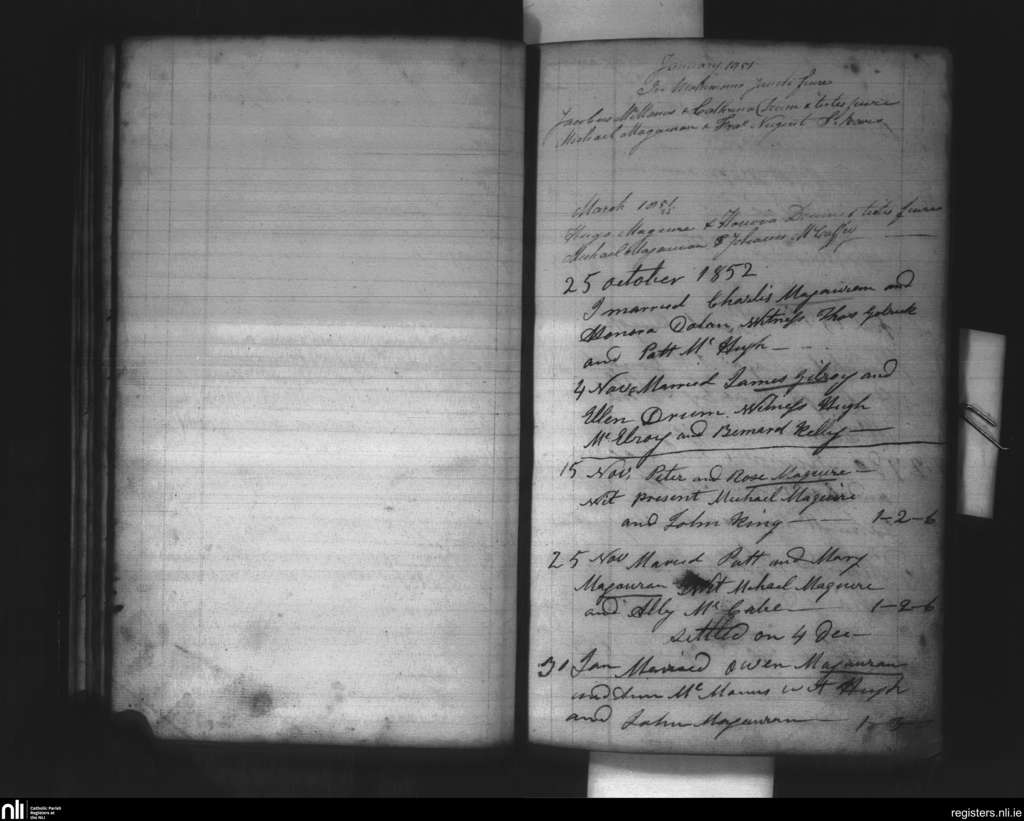 January 1851
In Matrimonio Juncti fuere
Jacobus McManus & Catherina Drum & testes fuere
Michael Magauran & Fras Nugent
March 1851
Hugo Maguire & Honoria & testes fuere
Michael Magauran & Johannes McCaffry
25 october 1852
I married Charlis Magauran and
Honora Dolan, Witness Thos
and Patt Mc Hugh
4 Nov. Married James Gilroy and
Ellen Drum Witness Hugh
McElroy and Bernard Kelly
15 Nov. Peter and Rose Maguire
Wit present Michael Maguire
and John King 1-2-6
25 Nov Maried Patt and Mary
Magauran Wit Mihael Maguire
and Ally McCabe 1-2-6
settled on 4 Dec
31 Jan Married Owen Magauran
and Ann McManus wit Hugh
and John Magauran
nli
Catholic Parish
Registers at
the NLI
registers.nli.ie